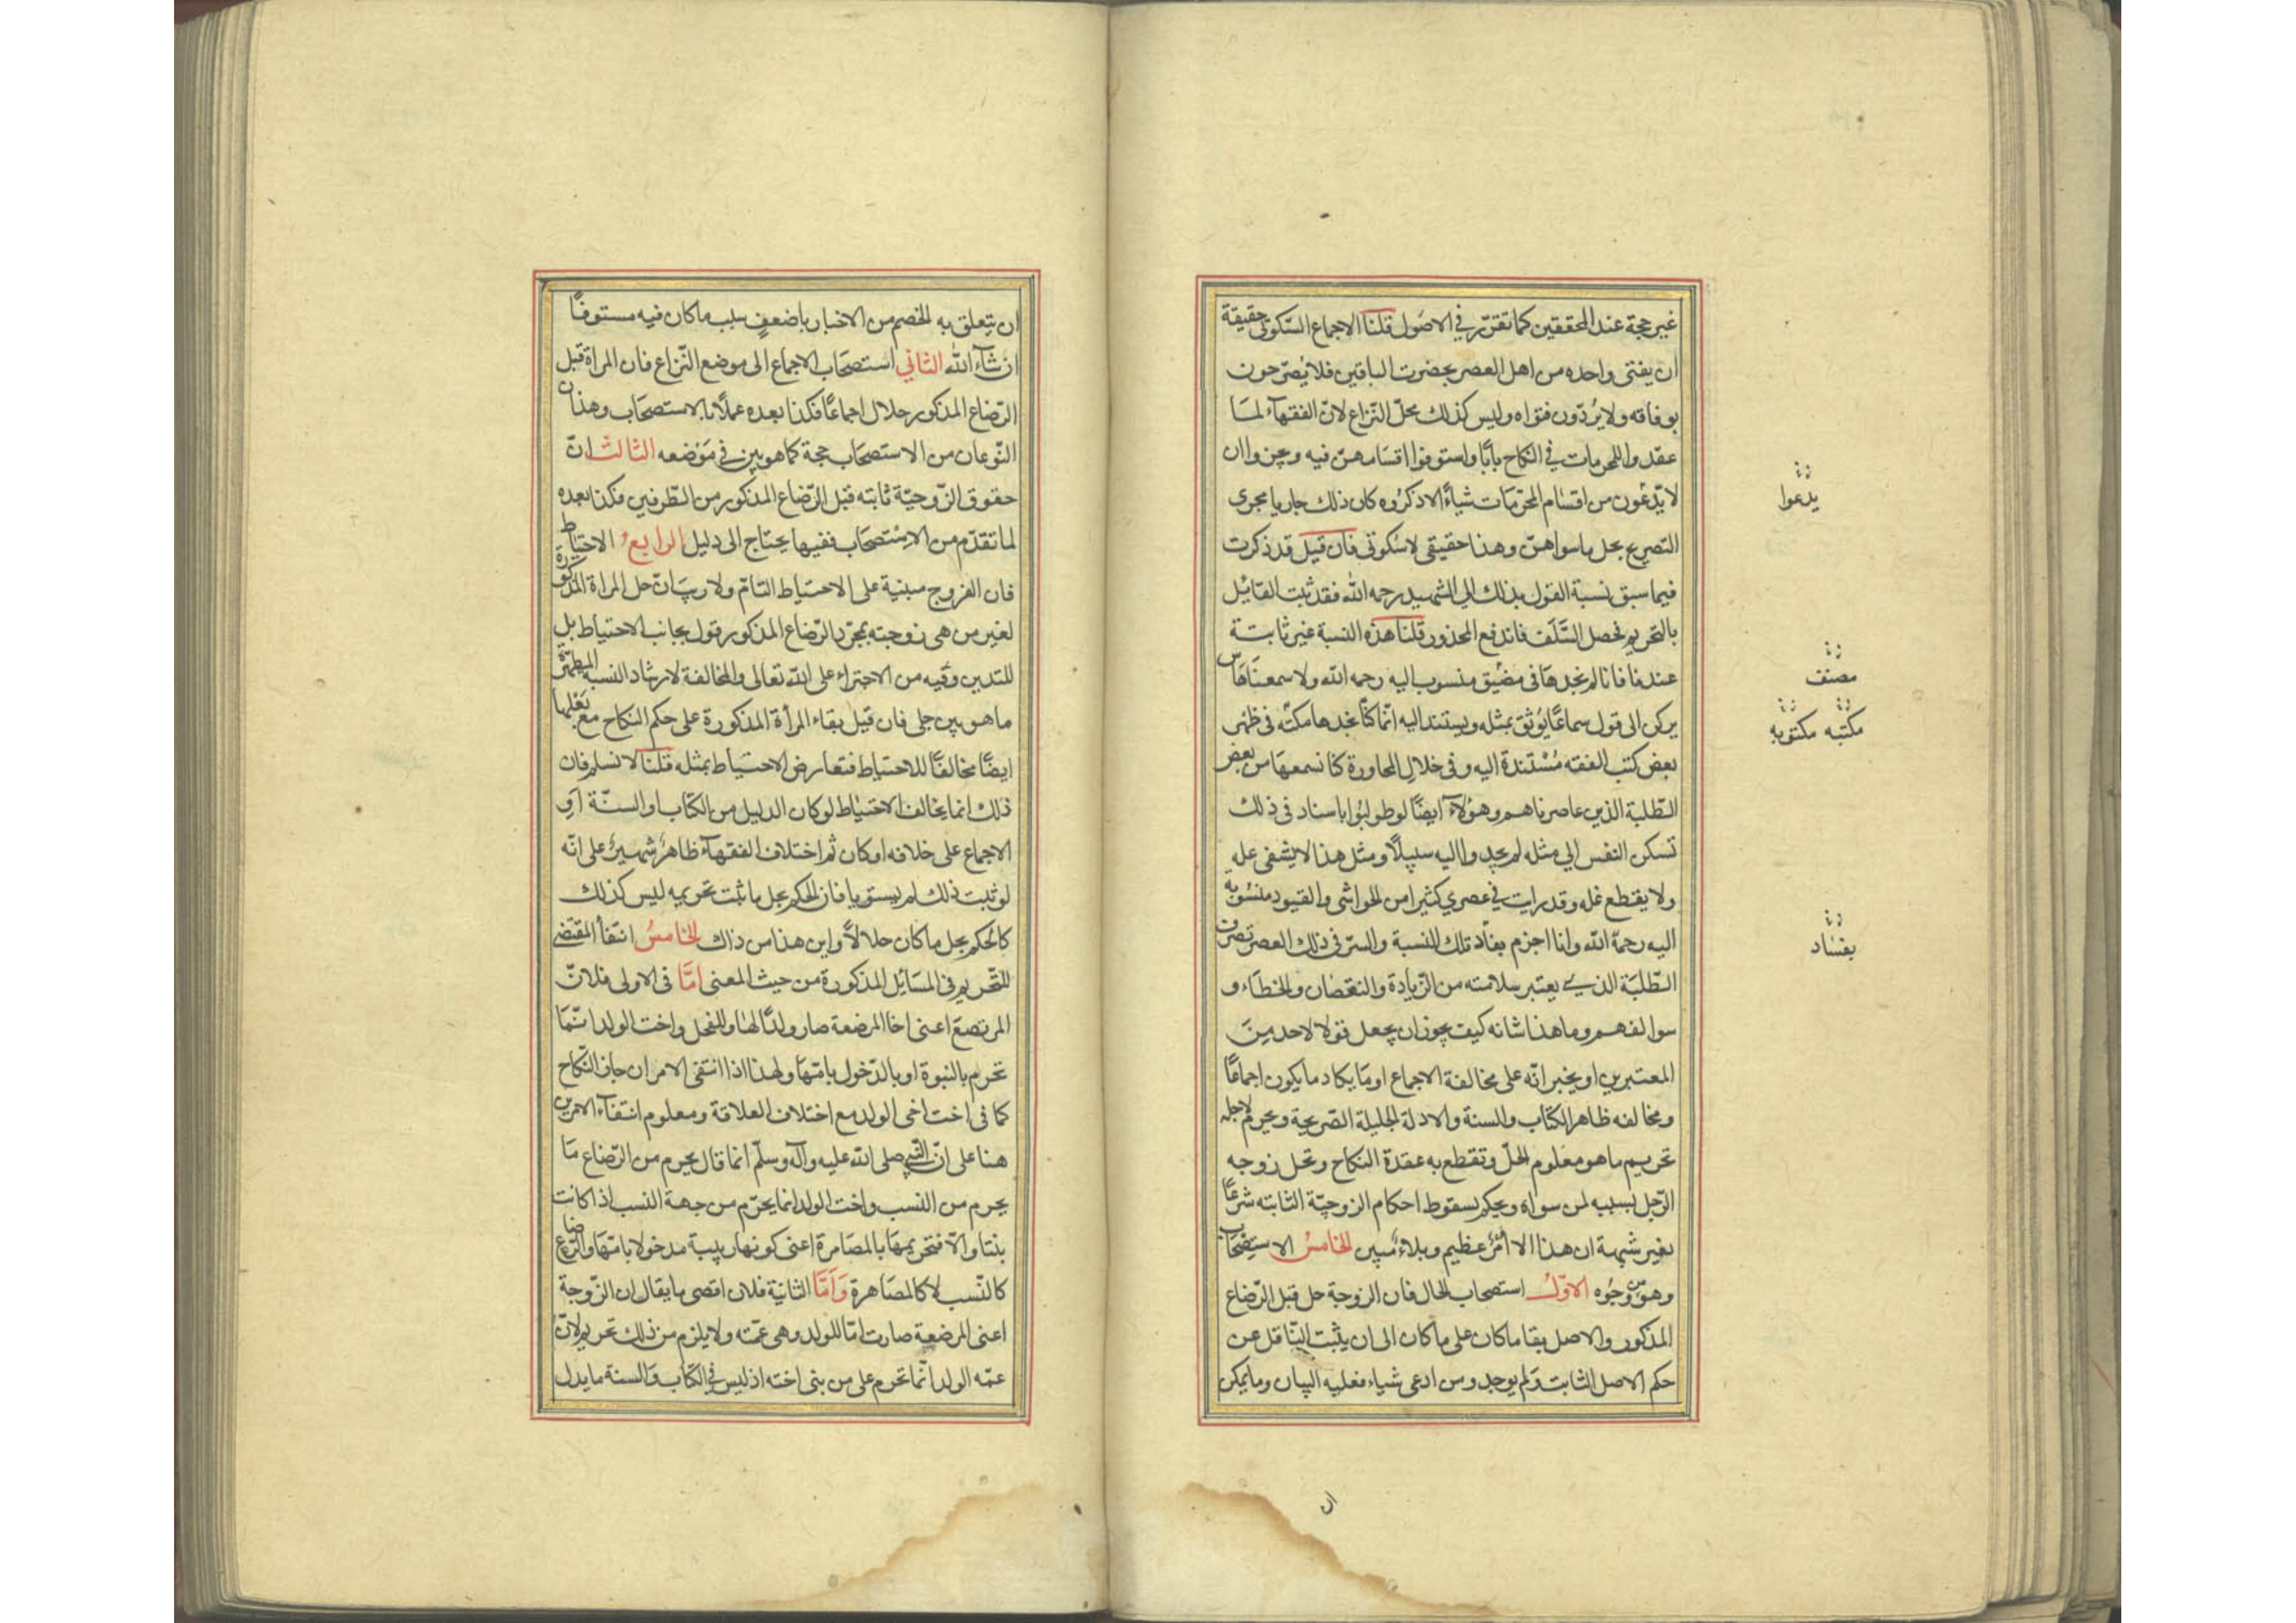 غير حجة عند المحققين كما تقرّر في الاصول قلنا الاجماع السّكوتي حقيقة
ان يفتى واحده من اهل العصر بحضرت الباقين فلا يُصَرّحون
بوفاقه ولا يُردّون فتواه وليس كذلك محلّ النّزاع لانّ الفقهآء لمّا
عقدوا للمحرمات في النكاح بابًا واستوفوا اقسامهنّ فيه وعزوا ان
لا يدّعون من اقسام المحرّمات شياءً الا ذكروه كان ذلك جاريا مجرى
التصريح بحل ما سواهنّ وهذا حقيقي لا سُكوتى فان قيل قد ذكرت
فيما سبق نسبة القول بذلك الي الشهيد رحمه الله فقد ثبت القائل
بالتحريم فحصل السَّلَف فاندفع المحذور قلنا هذه النسبة غير ثابتة
عندنا فانا لم نجدها فى مضيّق منسوب اليه رحمه الله ولا سمعناها من
يركن الى قول سماعًا يُوثق بمثله ويستند اليه انّما كنّا نجدها مكتّه فى ظهر
بعض كتب الفقه مُسْتندة اليه وفى خلال المحاورة كنا نسمعها من بعض
الطّلبة الذين عاصرناهم وهؤلآء ايضًا لو طولبُوا باسناد فى ذلك
تسكن النفس الي مثله لم يجدوا اليه سبيلًا ومثل هذا لا يشفى عله
ولا يقطع غله وقد رايت في عصري كثيرا من الحواشى والقيود منسُوبة
اليه رحمهُ الله وانا اجزم بفاد تلك النسبة والسرّ فى ذلك العصر تصرف
الطّلبَة الذي يعتبر سلامته من الزّيادة والنقصان والخطاء و
سوالفهم وما هذا شانه كيف يجوز ان يجعل قولا لاحد مِنَ
المعتبرين او يخبر انّه على مخالفة الاجماع او مَا يكاد ما يكون اجماعًا
ومخالفه ظاهر الكتاب والسنة والادلة الجليلة الصّريحة ويحرم لاجله
تحريم ما هو معلوم الحلّ وتقطع به عقدة النكاح وتحل زوجه
الرّجل بسببه لمن سواه ويحكم بسقوط احكام الزوجيّة الثابته شرعًا
بغير شبهة ان هذا الا امْرٌ عظيم وبلاءٌ مُبين الخامسُ الاستصْحَاب
وهو من وجُوه الاوّلُ استصحاب الحال فان الزوجة حل قبل الرّضاع
المذكور والاصل بقا ما كان على ما كان الى ان يثبت النّاقل عن
حكم الاصل الثابت وَلم يوجد ومن ادعى شياء فعليه البيان وما يمكن
يدعوا
مصنف
مكتبه مكتوبه
بفساد
ان يتعلق به الخصم من الاخبار باضعف سلب ما كان فيه مستوفًا
ان شآء الله الثاني استصحَاب الاجماع الى موضع النّزاع فان المراة قبل
الرّضاع المذكور حلال اجماعًا فكذا بعده عملًا بالاستصحَاب وهذان
النّوعان من الاستصحَاب حجة كما هو بين في مَوْضعه الثالث انّ
حقوق الزّوجيّة ثابته قبل الرّضاع المذكور من الطّرفين فكذا بعده
لما تقدّم من الاسْتصحَاب فنفيها يحتاج الى دليل الرابعُ الاحتياط
فان الفروج مبنية على الاحتياط التامّ ولا ريب انّ حل المراة المذكورة
لغير من هى زوجته بمجرّد الرّضاع المذكور قول بجانب الاحتياط بل
للتدين وفيه من الاجتراء على الله تعالى والمخالفة لارشاد النسبة المطهرة
ما هو بين جلى فان قيل بقاء المرأة المذكورة على حكم النكاح مع بَعْلها
ايضًا مخالفًا للاحتياط فتعارض الاحتياط بمثله قلنا لا نسلم فان
ذلك انما يخالف الاحتياط لو كان الدليل من الكتاب او السنّة اَو
الاجماع على خلافه او كان ثم اختلاف الفقهآء ظاهرٌ شهيرٌ على انّه
لو ثبت ذلك لم يستويا فان الحكم بحل ما ثبت تحريمه ليس كذلك
كالحكم بحل ما كان حلالًا واين هذا من ذاك الخامسُ انتفآء المقتضى
للتّحريم فى المسَائل المذكورة من حيث المعنى امَّا فى الاولى فلانّ
المرتضعَ اعنى اخا المرضعة صار ولدًا لها وللفحل واخت الولد انّمَا
تحرم بالنبوة او بالدّخول بامّها ولهذا اذا انتفى الامران جاز النّكاح
كما فى اخت اخى الولد مع اختلاف العلاقة ومعلوم انتفآء الامرين
هنا على انّ النّبي صلى الله عليه وآله وسلّم انما قال يحرم من الرّضاع مَا
يحرم من النسب واخت الولد انما يحرّم من جهة النسب اذا كانت
بنتا والّا فتحريمها بالمصَاهرة اعنى كونها ربيبة مدخولا بامّها والرّضاع
كالنّسب لا كالمصَاهرة وَاَمَّا الثانية فلان اقصى ما يقال ان الزّوجة
اعنى المرضعة صارت امّا للولد وهى عمّته ولا يلزم من ذلك تحريم لانّ
عمّه الولد انّما تحرم على من بنى اخته اذ ليس في الكتاب وَالسنة ما يدل